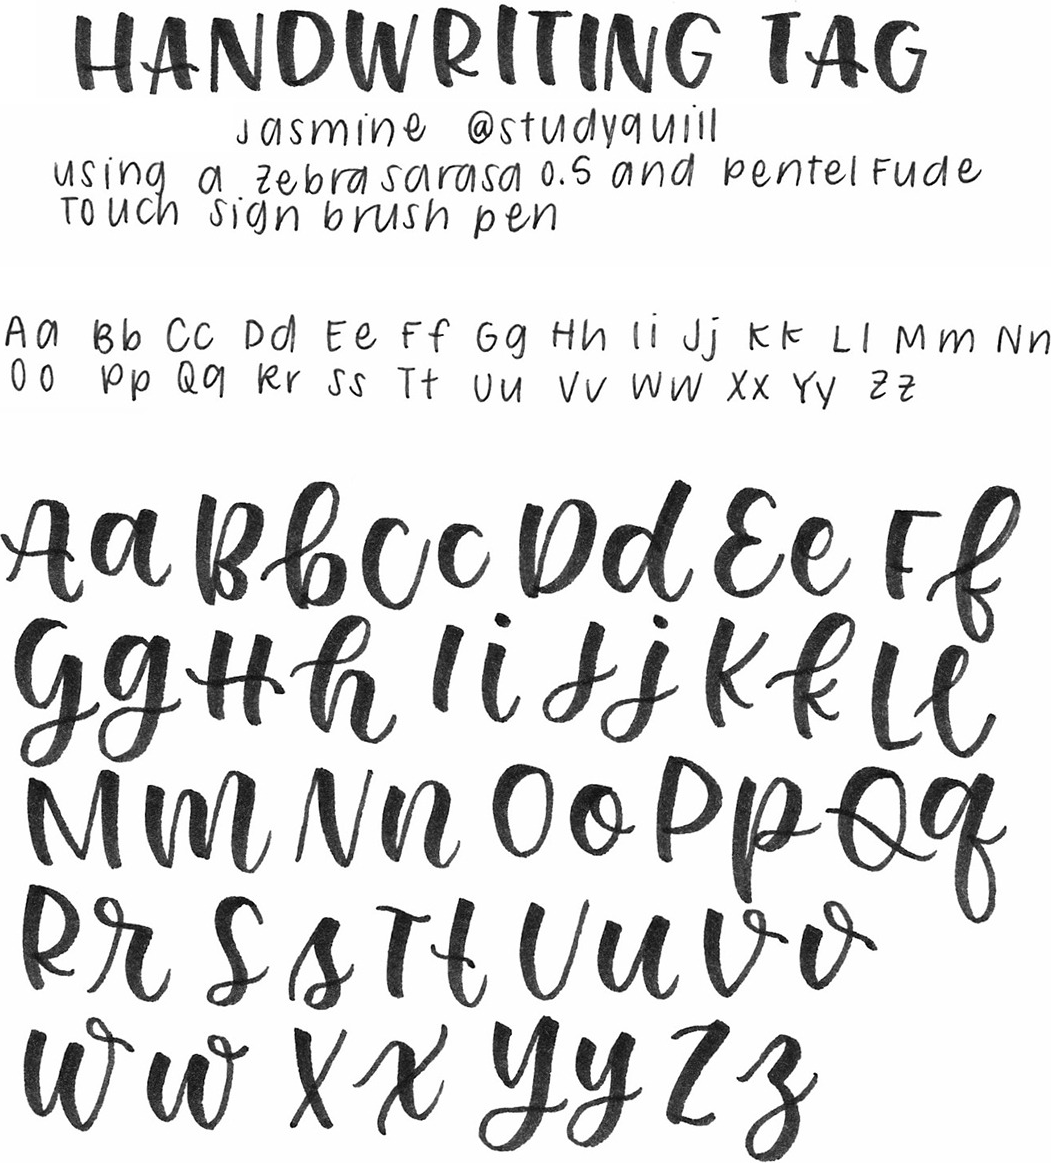 HANDWRITING TAG
Jasmine @studyquill
using a zebra sarasa 0.5 and pentel Fude
Touch Sign brush pen
Aa Bb Cc Dd Ee Ff Gg Hh Ii Jj Kk Ll Mm Nn
Oo Pp Qq Rr Ss Tt Uu Vv Ww Xx Yy Zz
Aa Bb Cc Dd Ee Ff
Gg Hh Ii Jj Kk Ll
Mm Nn Oo Pp Qq
Rr Ss Tt Uu Vv
Ww Xx Yy Zz